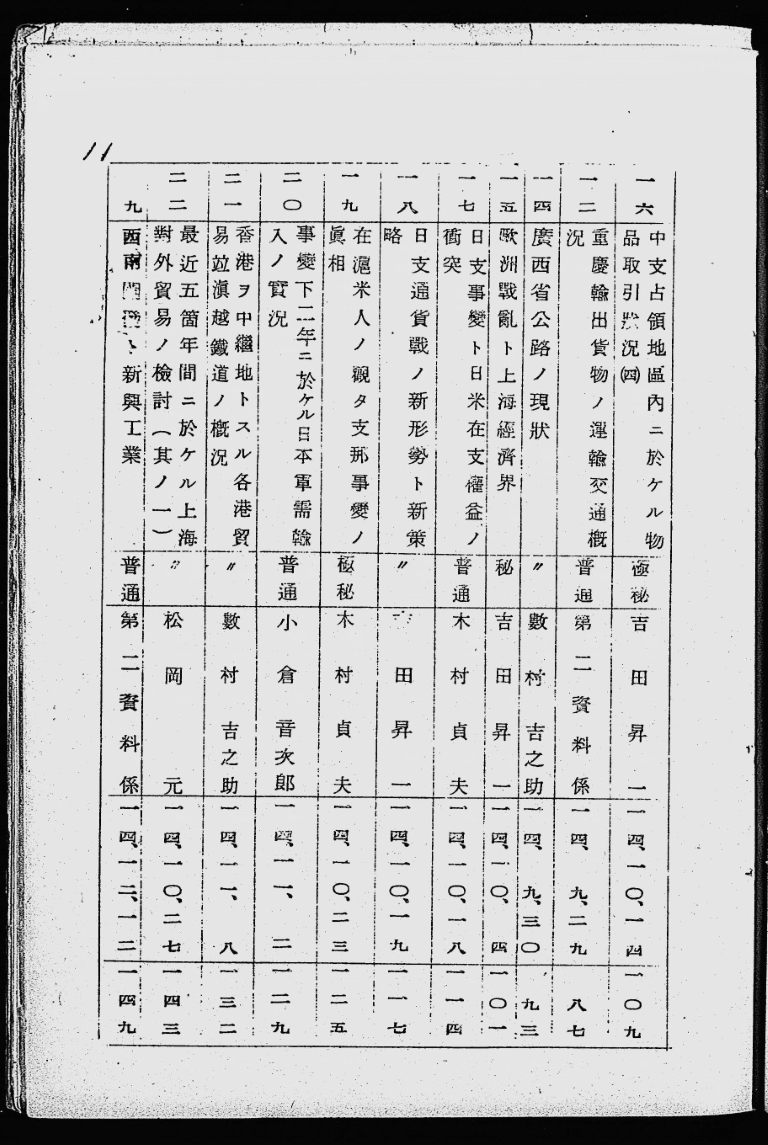 11
一六
中支占領地區內ニ於ケル物
品取引狀況㈣
極秘
吉田昇一
一四、一〇、一四
一〇九
一二
重慶輸出貨物ノ運輸交通槪
況
普通
第二資料係
一四、九、二九
八七
一四
廣西省公路ノ現狀
〃
數村吉之助
一四、九、三〇
九三
一五
歐洲戰亂ト上海經濟界
秘
吉田昇一
一四、一〇、四
一〇一
一七
日支事變ト日米在支權益ノ
衝突
普通
木村貞夫
一四、一〇、一八
一一四
一八
日支通貨戰ノ新形勢ト新策
略
〃
田昇一
一四、一〇、一九
一一七
一九
在滬米人ノ觀タ支那事變ノ
眞相
極秘
木村貞夫
一四、一〇、二三
一二五
二〇
事變下二年ニ於ケル日本軍需輸
入ノ實況
普通
小倉音次郎
一四、一一、二
一二九
二一
香港ヲ中繼地トスル各港貿
易竝滇越鐵道ノ槪況
〃
數村吉之助
一四、一一、八
一三二
二二
最近五箇年間ニ於ケル上海
對外貿易ノ檢討（其ノ一）
〃
松岡元
一四、一〇、二七
一四三
九
西南ト新興工業
普通
第二資料係
一四、一二、一二
一四九